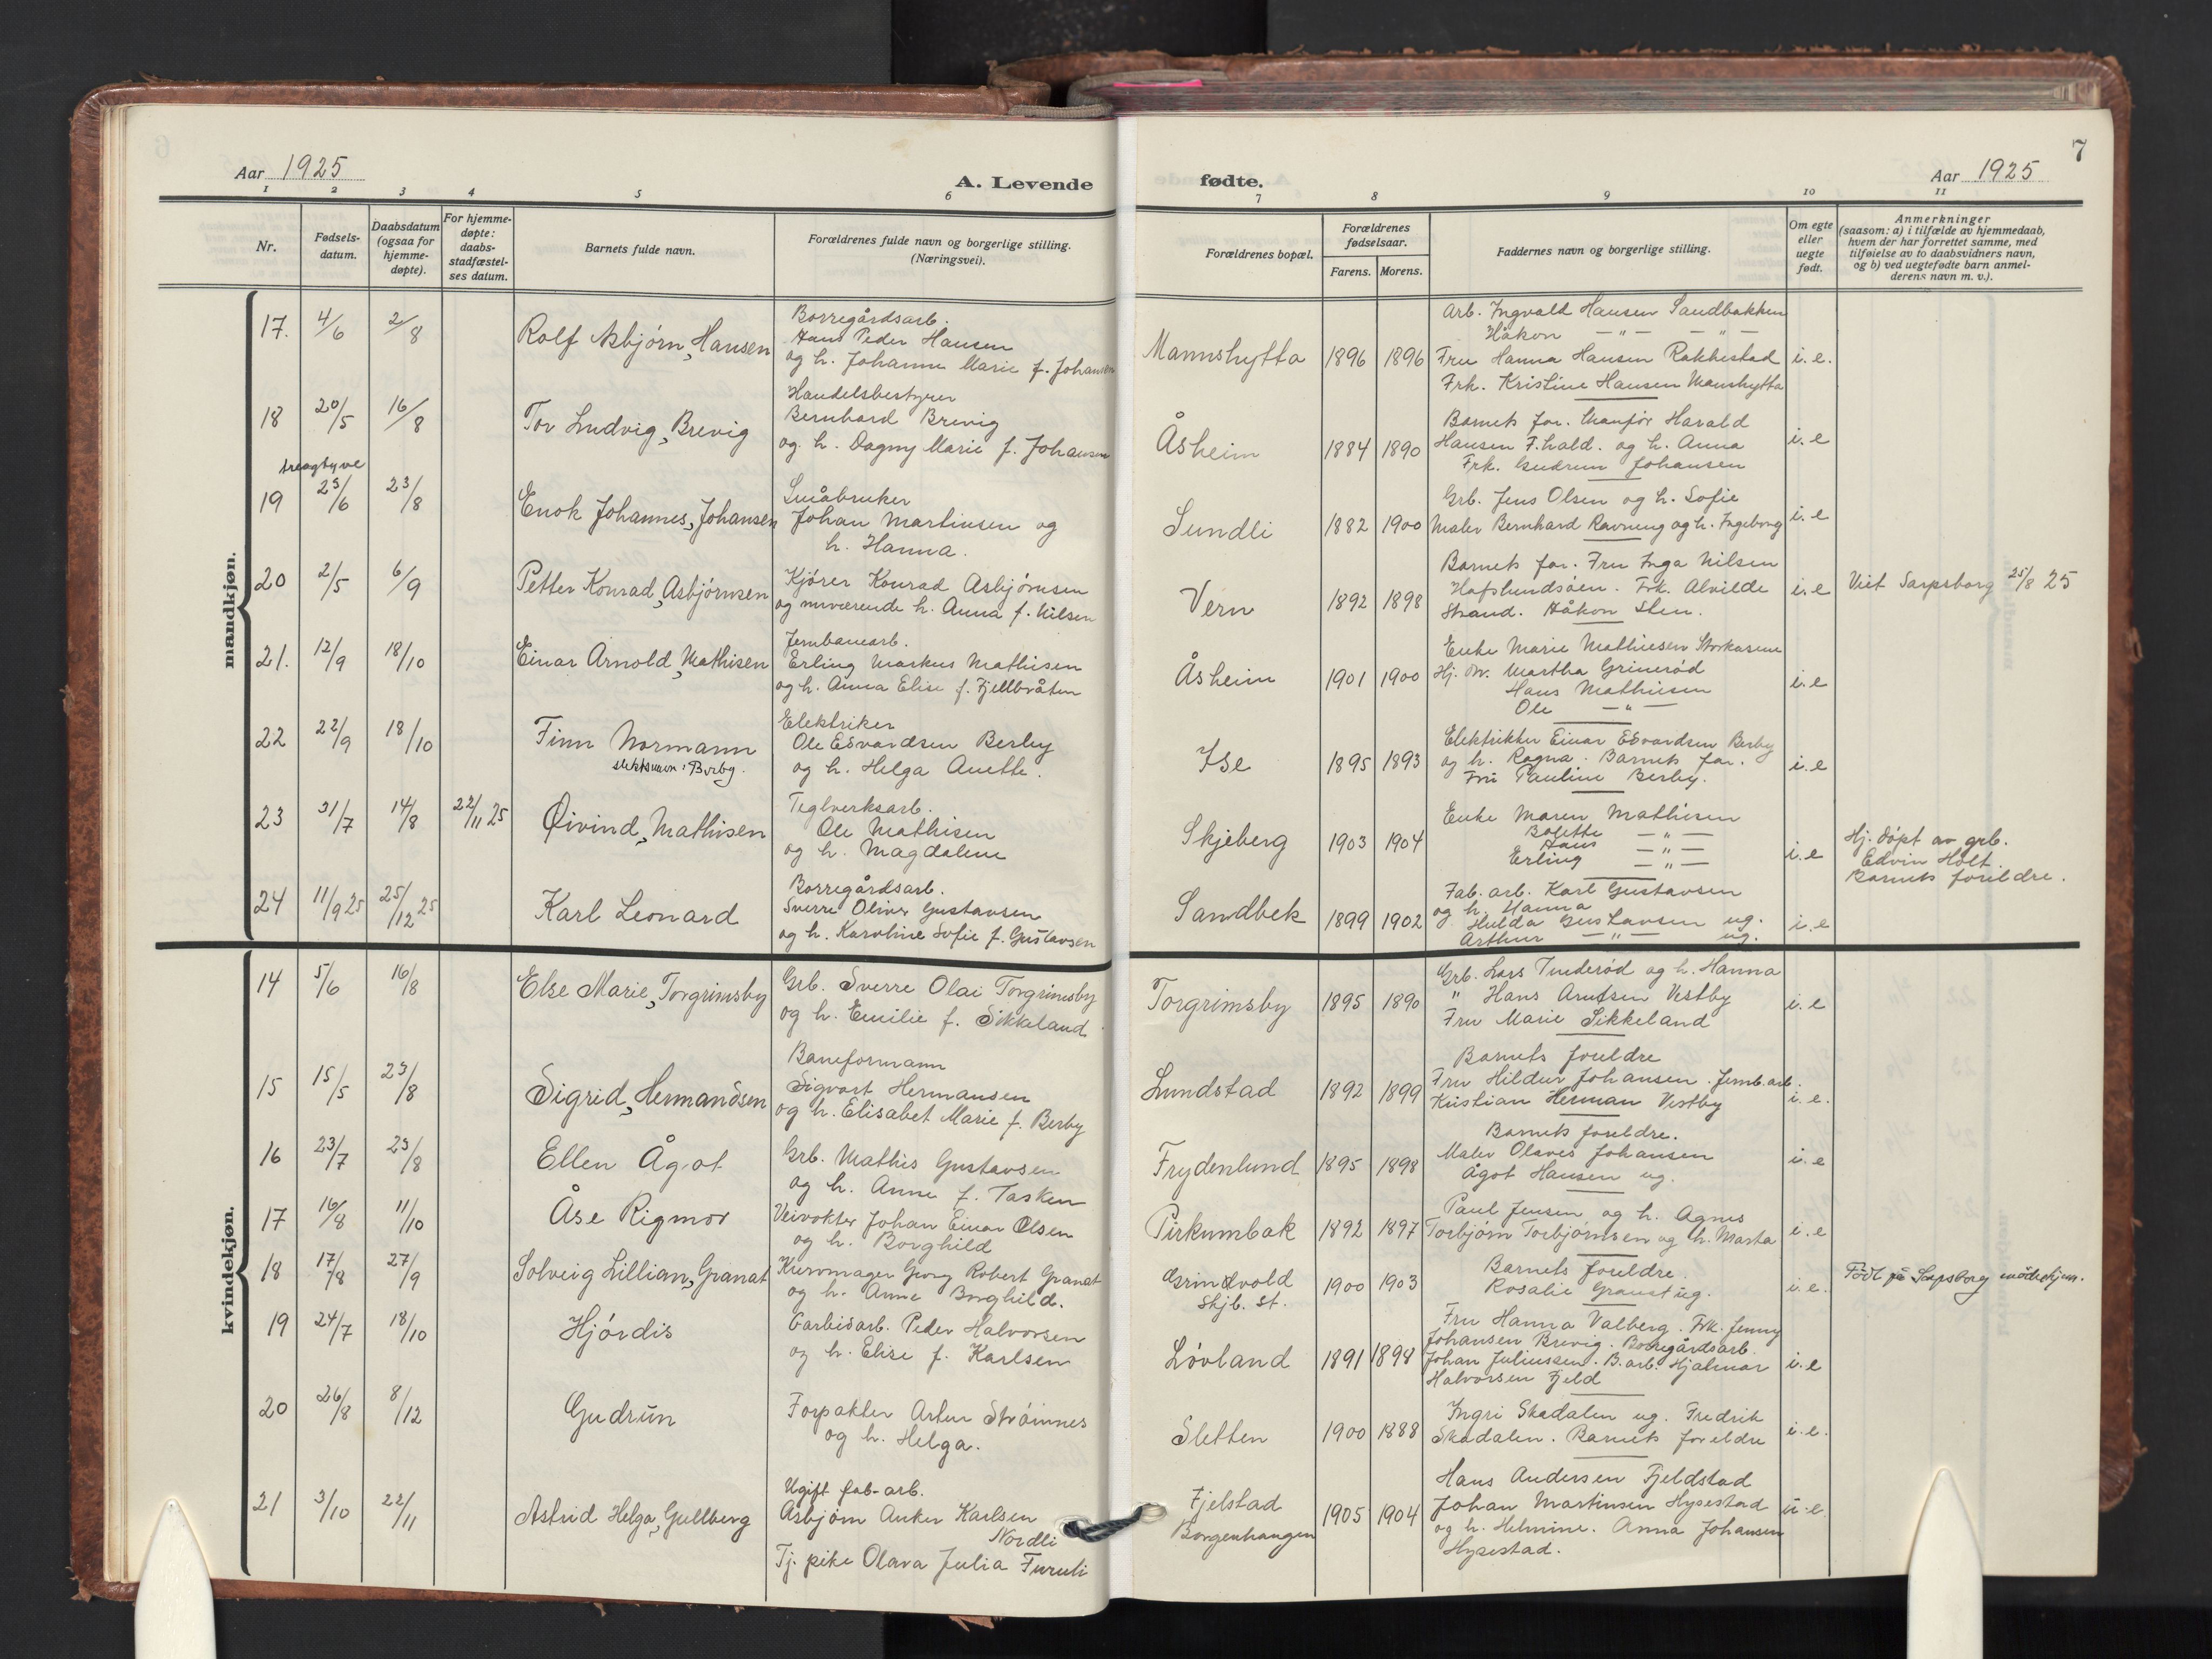 7
Aar 1925
A. Levende
fødte.
Aar 1925
1 2 3 4 5 6 7 8 9 10 11
Nr.
Fødsels-
datum.
Daabsdatum
(ogsaa for
hjemme-
døpte).
For hjemme-
døpte:
daabs-
stadfæstel-
ses datum.
Barnets fulde navn.
Forældrenes fulde navn og borgerlige stilling.
(Næringsvei).
Forældrenes bopæl.
Forældrenes
fødselsaar.
Farens. Morens.
Faddernes navn og borgerlige stilling.
Om egte
eller
uegte
født.
Anmerkninger
(saasom: a) i tilfælde av hjemmedaab,
hvem der har forrettet samme, med
tilføielse av to daabsvidners navn,
og b) ved uegtefødte barn anmel-
derens navn m. v.).
mandkjøn.
17. 4/6 2/8
Rolf Asbjørn, Hansen
Borregårdsarb.
Hans Peder Hansen
og h. Johanne Marie f. Johansen
Mannshytta 1896 1896
Arb. Ingvald Hansen Sandbakken
Håkon —"— —"—
Fru Hanna Hansen Rakkestad
Frk. Kristine Hansen Manshytta
i. e.
18 20/5 16/8
Tor Ludvig, Brevig
Handelsbestyrer
Bernhard Brevig
og h. Dagny Marie f. Johansen
Åsheim 1884 1890
Barnets for. Harald
Hansen F.hald. og h. Anna
Frk. Gudrun Johansen
i. e
treogtyve
19 23/6 23/8
Enok Johannes, Johansen
Småbruker
Johan Martinsen og
h. Hanna.
Sundli 1882 1900
Grb. Jens Olsen og h. Sofie
Maler Bernhard Ravnung og h. Ingeborg
i. e
20 2/5 6/9
Petter Konrad, Asbjørnsen
Kjører Konrad Asbjørnsen
og nuværende h. Anna f. Nilsen
Vern 1892 1898
Barnets for. Fru Inga Nilsen
Hafslundsøen. Frk. Alvilde
Strand. Håkon Sten.
i. e
Viet Sarpsborg 25/8 25
21. 12/9 18/10
Einar Arnold, Mathisen
Jernbanearb.
Erling Markus Mathisen
og h. Anna Elise f. Fjellbråten
Åsheim 1901 1900
Enke Marie Mathiesen
Hj. Martha Grinerød
Hans Mathiesen
Ole —"—
i. e
22 22/9 18/10
Finn Normann
slektsnavn: Berby.
Elektriker
Ole Edvardsen Berby
og h. Helga Anette.
Ise 1895 1893
Elektrikker Einar Edvardsen Berby
og h. Ragna. Barnets for.
Fru Pauline Berby.
i. e
23 31/7 14/8 22/11 25
Øivind, Mathisen
Teglverksarb.
Ole Mathisen
og h. Magdalene
Skjeberg 1903 1904
Enke Maren Mathisen
Bolette —"—
Hans —"—
Erling —"—
i. e
Hj. døpt av grb.
Edvin Holt.
Barnets foreldre.
24 11/9 25 25/12 25
Karl Leonard
Borregårdsarb.
Sverre Oliver Gustavsen
og h. Karoline Sofie f. Gustavsen
Sandbek 1899 1902
Fab. arb. Karl Gustavsen
og h. Hanna
Hulda Gustavsen ug.
Arthur —"— ug.
i. e
kvindekjøn.
14 5/6 16/8
Else Marie, Torgrimsby
Grb. Sverre Olai Torgrimsby
og h. Emilie f. Sikkeland
Torgrimsby 1895 1890
Grb. Lars Tinderød og h. Hanna
" Hans Arntsen Vestby
Fru Marie Sikkeland
i. e
15 15/5 23/8
Sigrid, Hermandsen
Baneformann
Sigvart Hermansen
og h. Elisabet Marie f. Berby
Lundstad 1892 1899
Barnets foreldre
Fru Hildur Johansen. Jernb. arb.
Kristian Herman Vestby
i. e.
16 23/7 23/8
Ellen Ågot
Grb. Mathis Gustavsen
og h. Anne f. Tasken
Frydenlund 1895 1898
Barnets foreldre.
Maler Olaves Johansen
Ågot Hansen ug.
i. e
17 16/8 11/10
Åse Rigmor
Veivokter Johan Einar Olsen
og h. Borghild
Pirkumbak 1892 1897
Paul Jensen og h. Agnes
Torbjørn Torbjørnsen og h. Marta
i. e
18 17/8 27/9
Solveig Lillian, Granat
Kurvmager Georg Robert Granat
og h. Anne Borghild.
Grindvold
Skjb. st.
1900 1903
Barnets foreldre.
Rosalie Granat ug.
i. e.
Født på Sarpsborg mødrehjem.
19 24/7 18/10
Hjørdis
Carbidarb. Peder Halvorsen
og h. Elise f. Karlsen
Løvland 1891 1898
Fru Hanna Valberg. Frk. Jenny
Johansen Brevig. Borregårdsarb.
Johan Juliussen. B. arb. Hjalmar
Halvorsen Fjeld
i. e
20 26/8 8/12
Gudrun
Forpakter Artur Strømnes
og h. Helga.
Sletten 1900 1888
Ingri Skadalen ug. Fredrik
Skadalen. Barnets foreldre
i. e.
21 3/10 22/11
Astrid Helga, Gullberg
Ugift fab-arb.
Asbjørn Anker Karlsen
Nordli
Tj. pike Olava Julia Furuli
Fjelstad
Borgenhaugen
1905 1904
Hans Andersen Fjeldstad
Johan Martinsen Hysestad
og h. Helmine. Anna Johansen
Hysestad.
u. e.